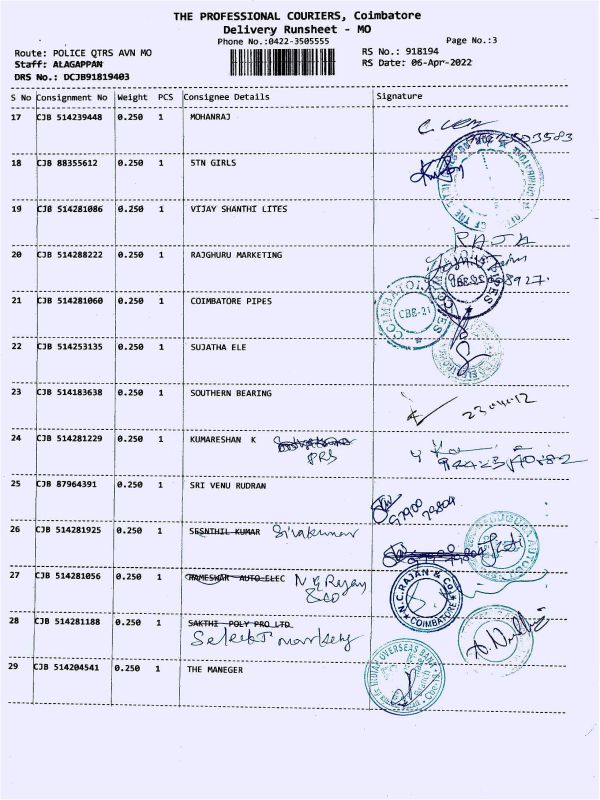 THE PROFESSIONAL COURIERS, Coimbatore
Delivery Runsheet - MO
Phone No.:0422-3505555
Page No.:3
Route: POLICE QTRS AVN MO
RS No.: 918194
Staff: ALAGAPPAN
RS Date: 06-Apr-2022
DRS No.: DCJB91819403
S No Consignment No Weight PCS Consignee Details Signature
17 CJB 514239448 0.250 1 MOHANRAJ
18 CJB 88355612 0.250 1 STN GIRLS
19 CJB 514281086 0.250 1 VIJAY SHANTHI LITES
RAJA
20 CJB 514288222 0.250 1 RAJGHURU MARKETING
21 CJB 514281060 0.250 1 COIMBATORE PIPES
COIMBATORE PIPES
CBE-21
22 CJB 514253135 0.250 1 SUJATHA ELE
23 CJB 514183638 0.250 1 SOUTHERN BEARING
24 CJB 514281229 0.250 1 KUMARESHAN K
PRS
25 CJB 87964391 0.250 1 SRI VENU RUDRAN
97900
79804
26 CJB 514281925 0.250 1 SESNTHIL KUMAR Sivakumar
27 CJB 514281056 0.250 1 RAMESHWAR AUTO ELEC N G Rajan
& Co
N.C.RAJAN & Co.
COIMBATORE
28 CJB 514281188 0.250 1 SAKTHI POLY PRO LTD
Select T markeng
29 CJB 514204541 0.250 1 THE MANEGER
INDIAN OVERSEAS BANK